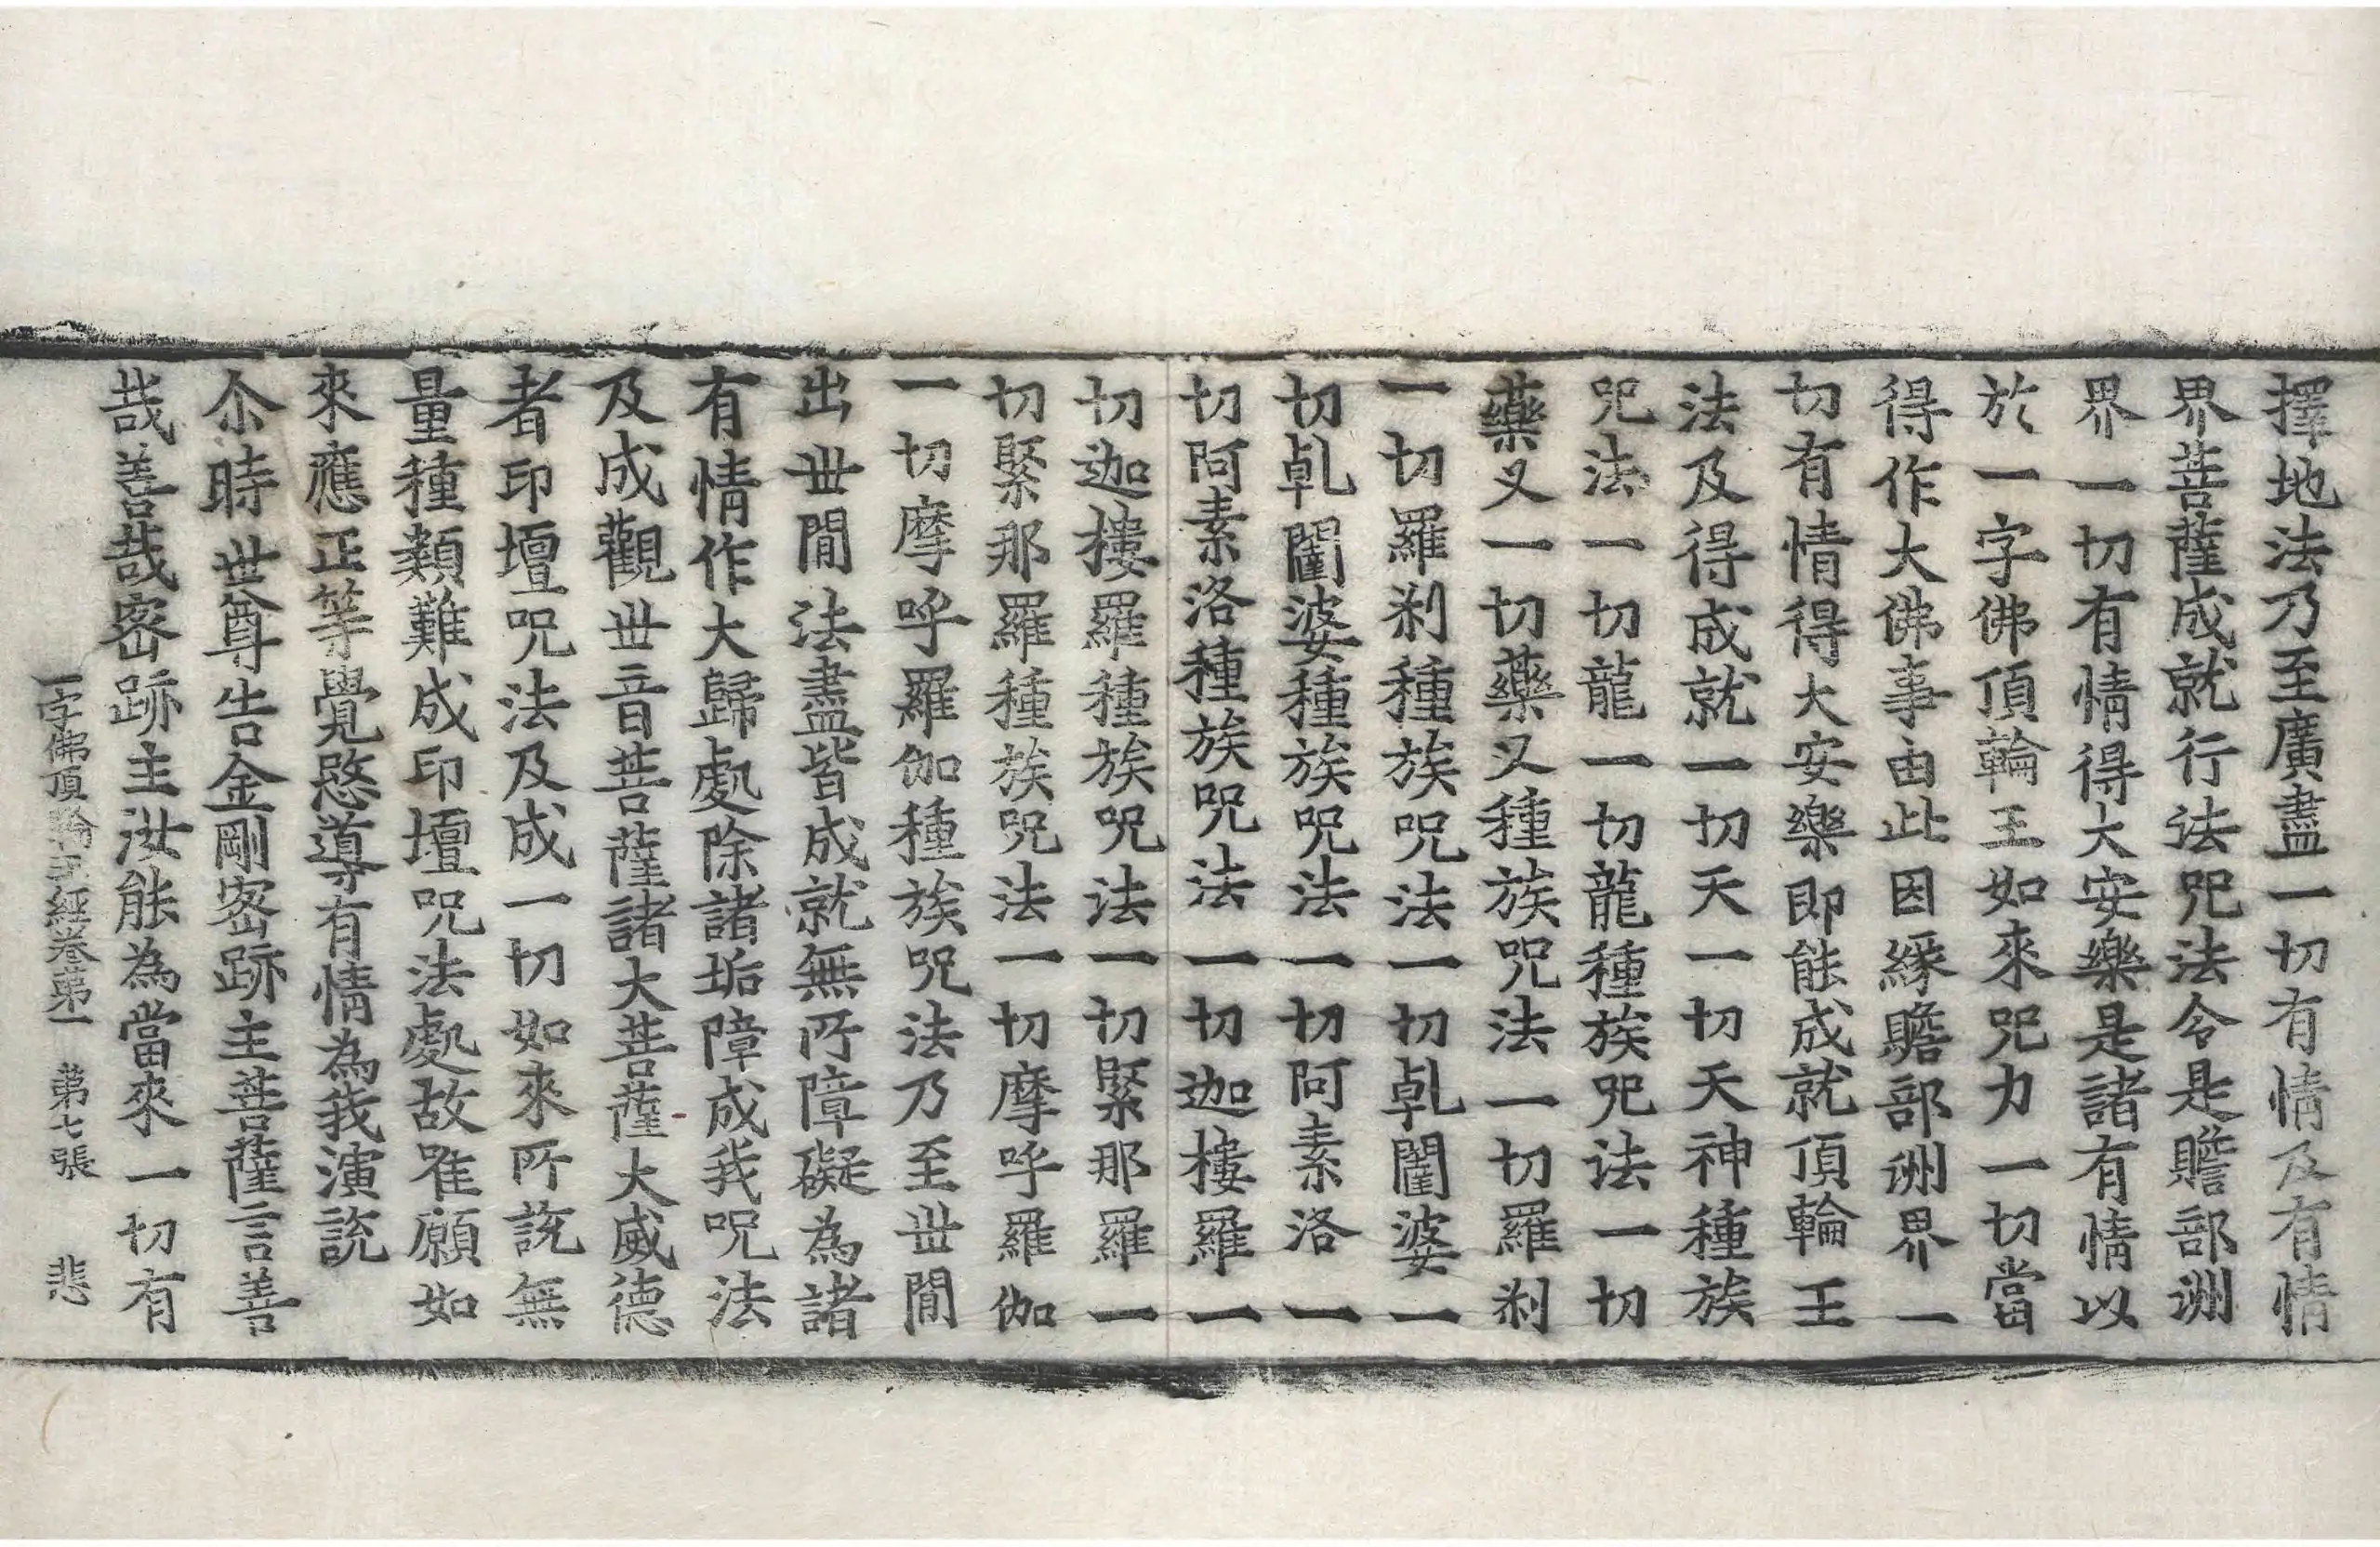 擇地法乃至廣盡一切有情及有情
界菩薩成就行法咒法令是贍部洲
界一切有情得大安樂是諸有情以
於一字佛頂輪王如來咒力一切當
得作大佛事由此因緣贍部洲界一
切有情得大安樂即能成就頂輪王
法及得成就一切天一切天神種族
咒法一切龍一切龍種族咒法一切
藥叉一切藥叉種族咒法一切羅剎
一切羅剎種族咒法一切乹闥婆一
切乹闥婆種族咒法一切阿素洛一
切阿素洛種族咒法一切迦樓羅一
切迦樓羅種族咒法一切緊那羅一
切緊那羅種族咒法一切摩呼羅伽
一切摩呼羅伽種族咒法乃至丗閒
出丗閒法盡皆成就無所障礙為諸
有情作大歸處除諸垢障成我咒法
及成觀丗音菩薩諸大菩薩大威德
者印壇咒法及成一切如來所說無
量種類難成印壇咒法處故唯願如
來應正等覺愍導有情為我演說
尒時丗尊告金剛密跡主菩薩言善
哉善哉密跡主汝能為當來一切有
一字佛頂輪王經卷苐一 苐七張 悲